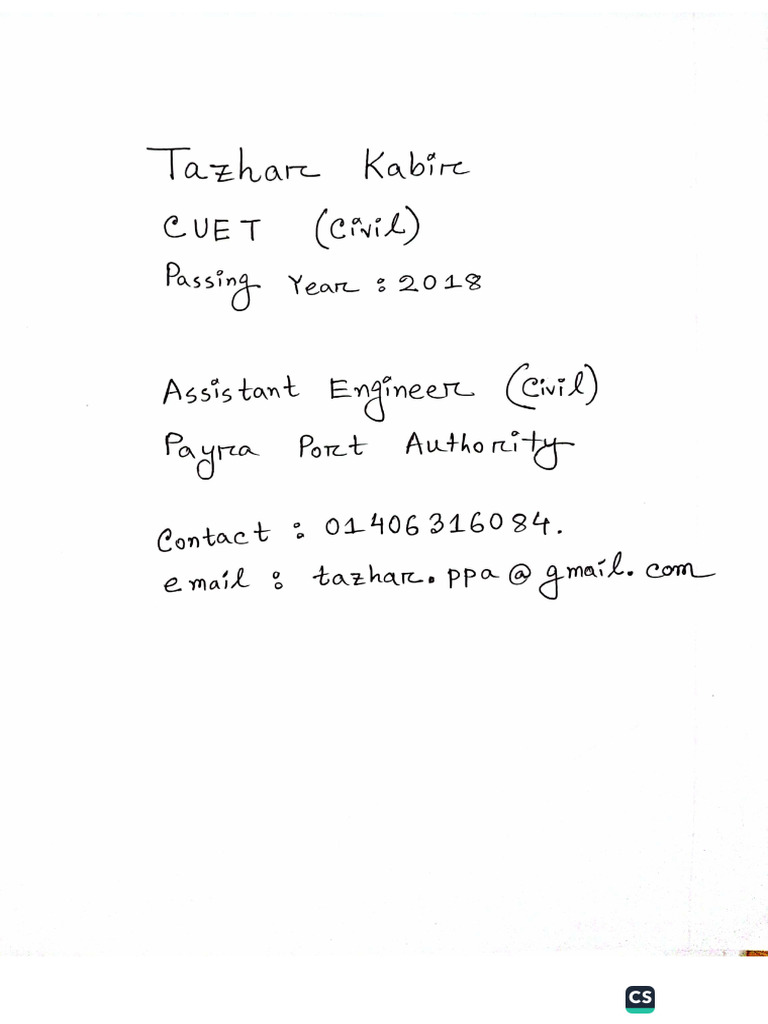 Tazhar Kabir
CUET (Civil)
Passing Year : 2018
Assistant Engineer (Civil)
Payra Port Authority
Contact : 01406316084.
email : tazhar.ppa@gmail.com
CS